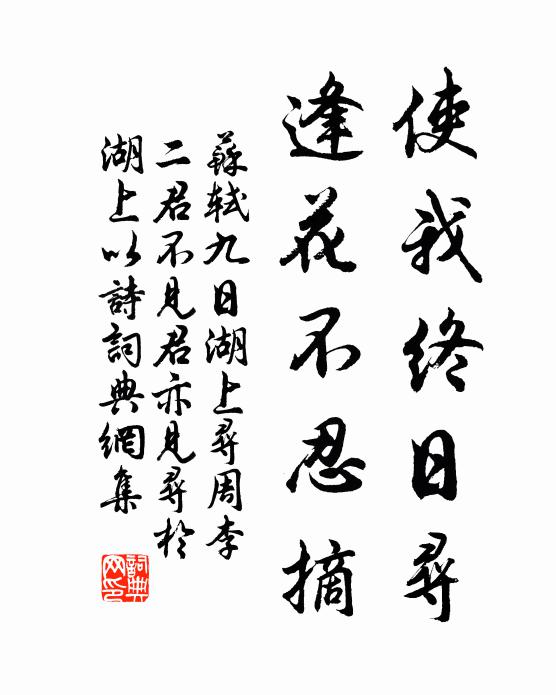 使我終日尋
逢花不忍摘
蘇軾九日湖上尋周李
二君不見君亦見尋於
湖上以詩詞典網集
詞典
网印